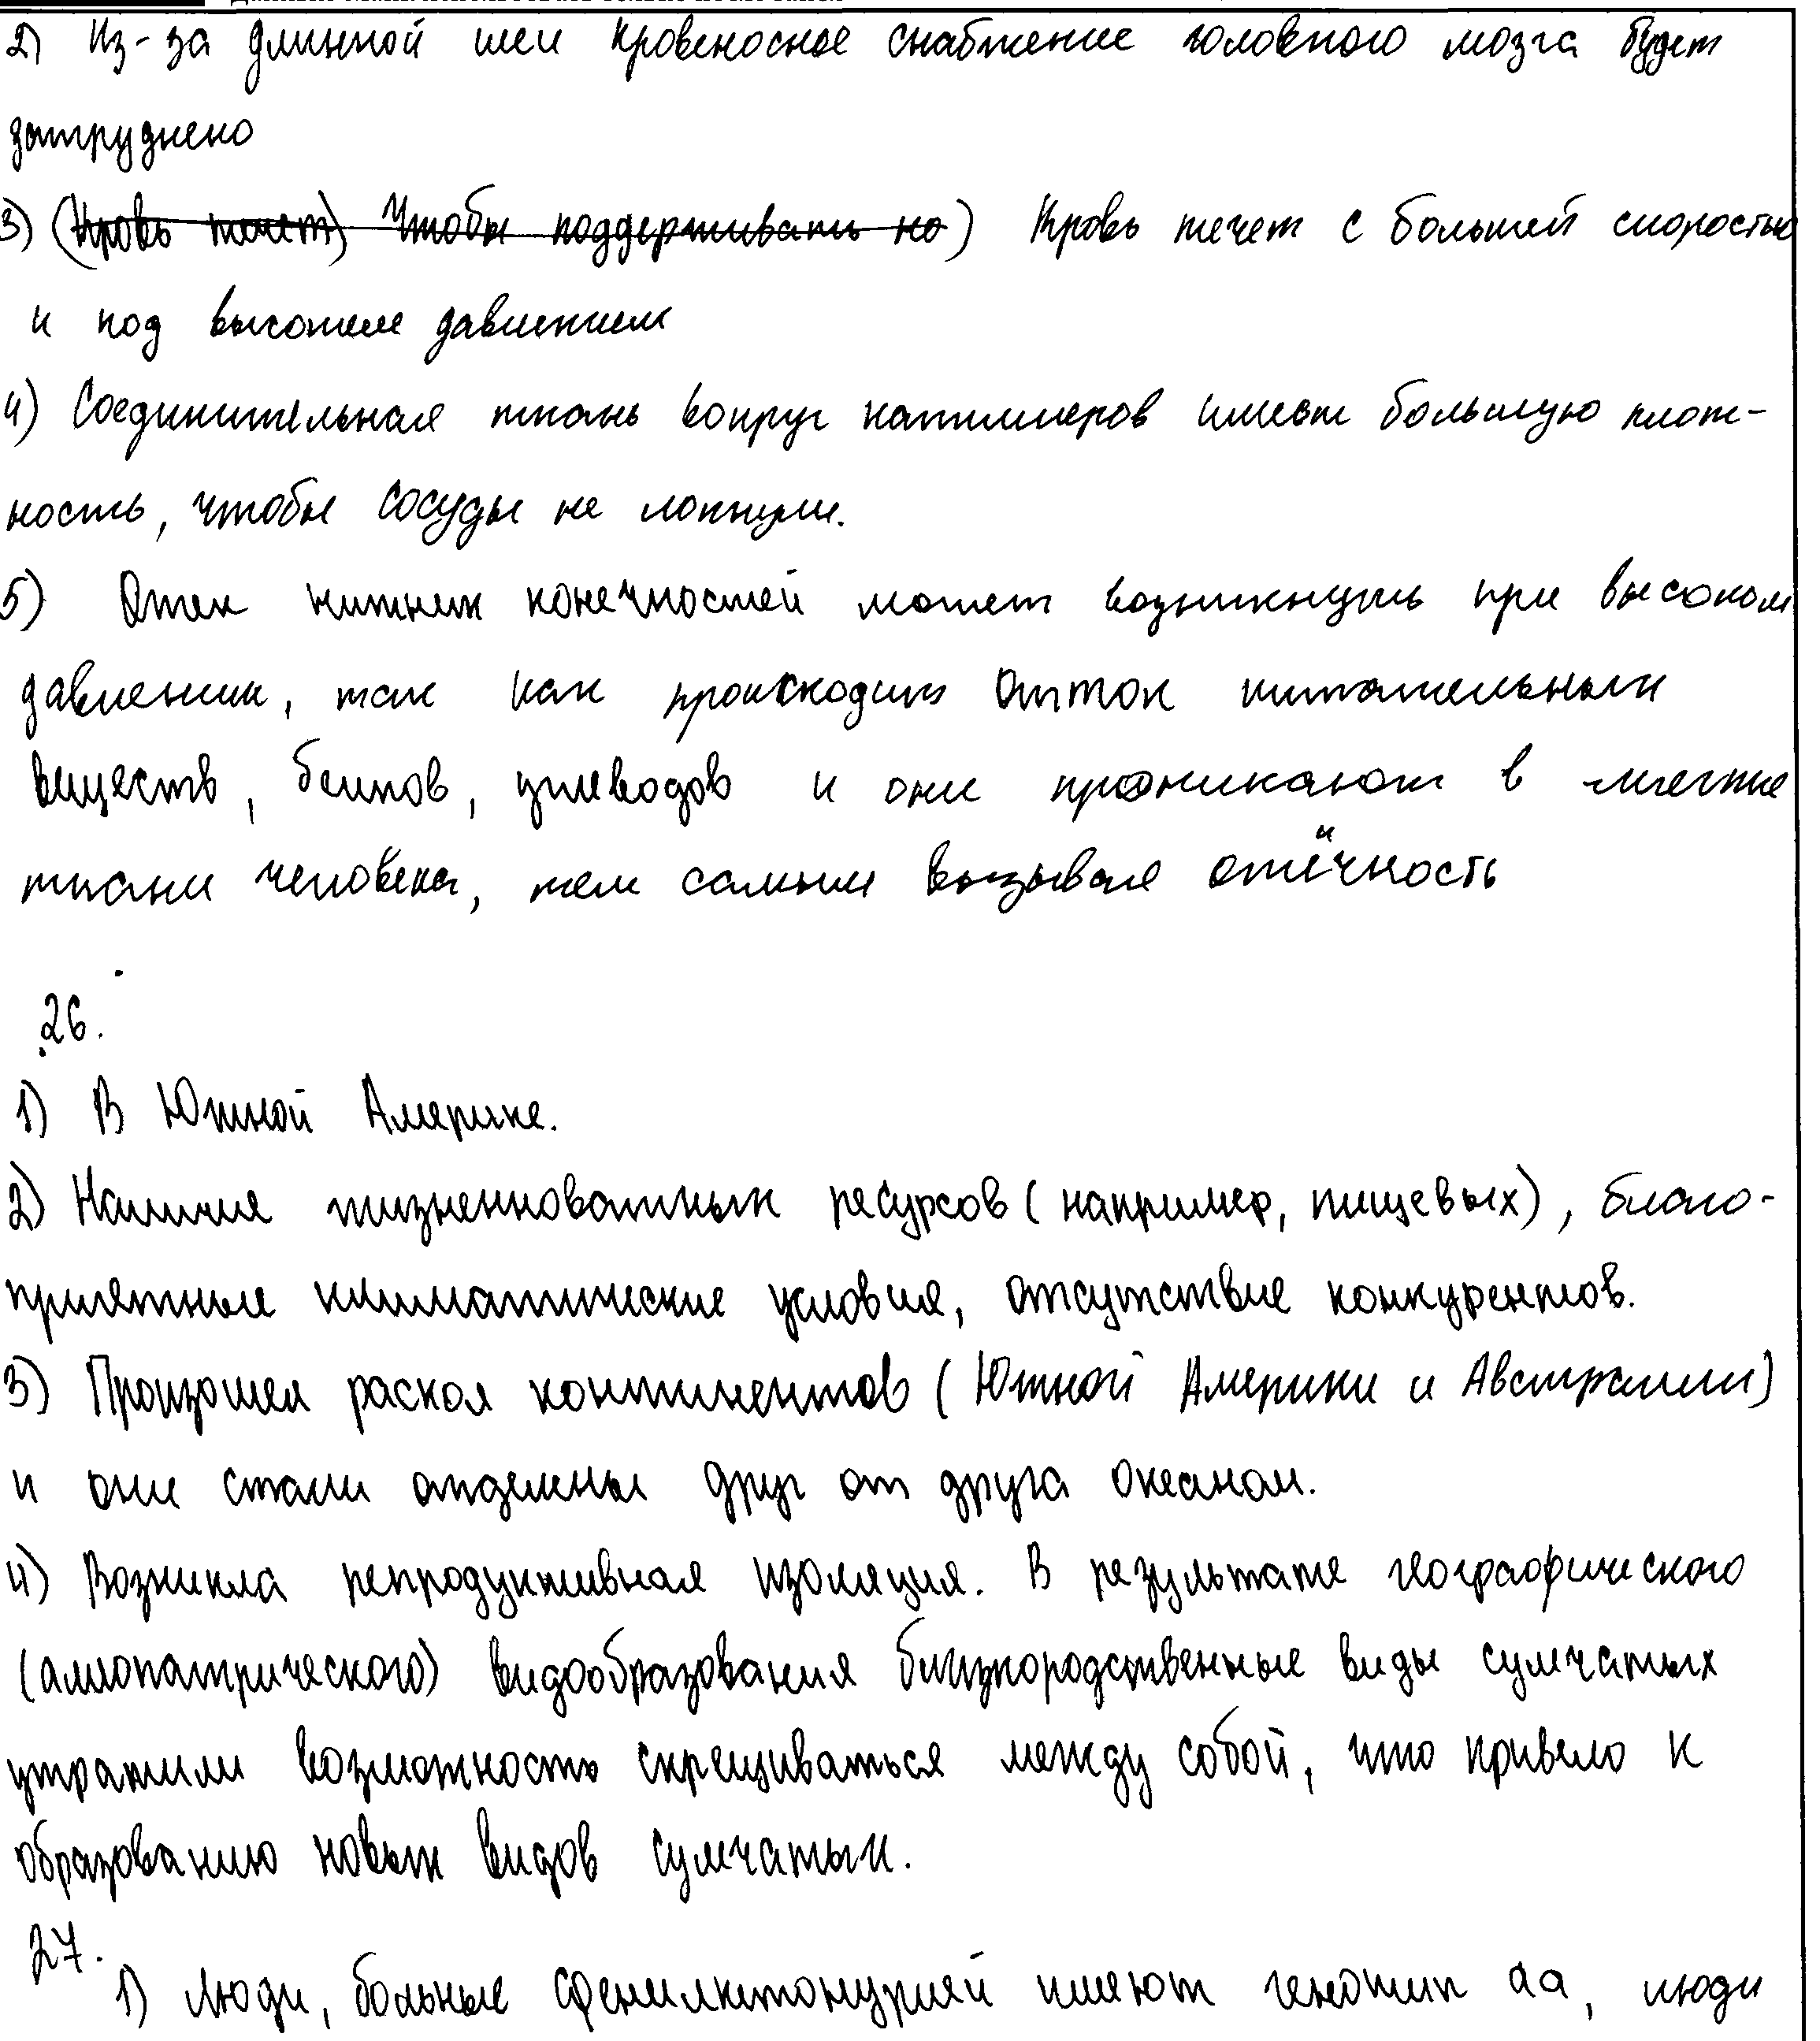 2) Из-за длинной шеи кровеносное снабжение головного мозга будет
затруднено
3) (Кровь течет) Чтобы поддерживать но) Кровь течет с большей скоростью
и под высоким давлением
4) Соединительная ткань вокруг капилляров имеет большую плот-
ность, чтобы сосуды не лопнули.
5) Отек нижних конечностей может возникнуть при высоком
давлении, так как происходит отток питательных
веществ, белков, углеводов и они проникают в мягкие
ткани человека, тем самым вызывая отёчность
26.
1) В Южной Америке.
2) Наличие жизненноважных ресурсов (например, пищевых), благо-
приятные климатические условия, отсутствие конкурентов.
3) Произошел раскол континентов (Южной Америки и Австралии)
и они стали отделены друг от друга океаном.
4) Возникла репродуктивная изоляция. В результате географического
(аллопатрического) видообразования близкородственные виды сумчатых
утратили возможность скрещиваться между собой, что привело к
образованию новых видов сумчатых.
27.
1) Люди, больные фенилкетонурией имеют генотип аа, люди